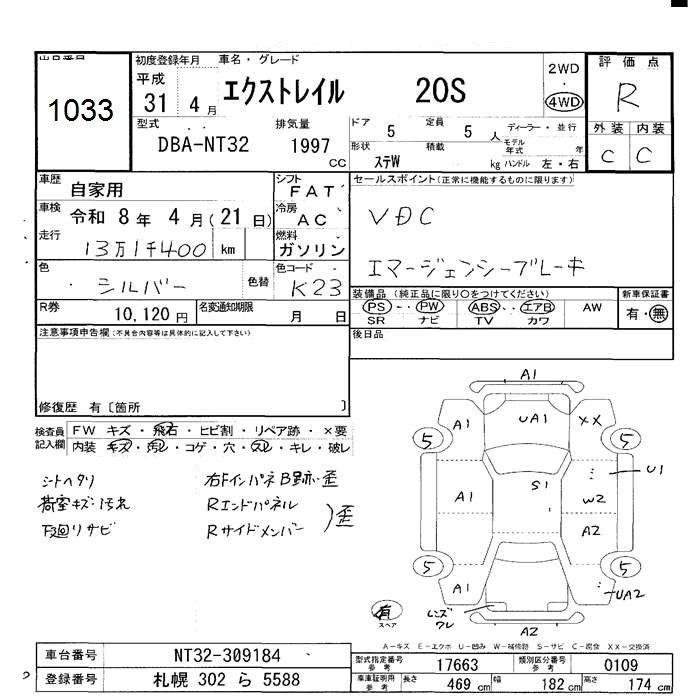 出品番号 初度登録年月 車名・グレード 評価点
1033 平成 31年 4月 エクストレイル 20S 2WD 4WD R
型式 排気量 ドア 定員 ディーラー・並行 外装 内装
DBA-NT32 1997 CC 5 5人 モデル年式 年 C C
形状 ステW 積載 kg ハンドル 左・右
車歴 自家用 シフト FAT セールスポイント(正常に機能するものに限ります)
車検 令和 8年 4月(21日) 冷房 AC VDC
走行 13万1千400 km 燃料 ガソリン
色 シルバー 色替 色コード K23 エマージェンシーブレーキ
R券 10,120円 名変通知期限 月 日 装備品(純正品に限り○をつけてください) 新車保証書
PS・PW ABS・エアB AW 有・無
SR ナビ TV カワ
注意事項申告欄(不具合内容等は具体的に記入して下さい) 後日品
修復歴 有〔箇所 〕
検査員記入欄 FW キズ・飛石・ヒビ割・リペア跡・×要
内装 キズ・汚レ・コゲ・穴・スレ・キレ・破レ
シートヘタリ 右Fインパネ B跡・歪
荷室キズ・汚れ Rエンドパネル
下廻りサビ Rサイドメンバー 歪
A1
A1 UA1 XX
5 5
U1
A1 S1 W2
A2
5 5
A1 UA2
有 スペア レンズワレ
A2
A-キズ E-エクボ U-凹み W-補修跡 S-サビ C-腐食 XX-交換済
車台番号 NT32-309184 型式指定番号 参考 17663 類別区分番号 参考 0109
登録番号 札幌 302 ら 5588 車庫証明用 参考 長さ 469 cm 幅 182 cm 高さ 174 cm